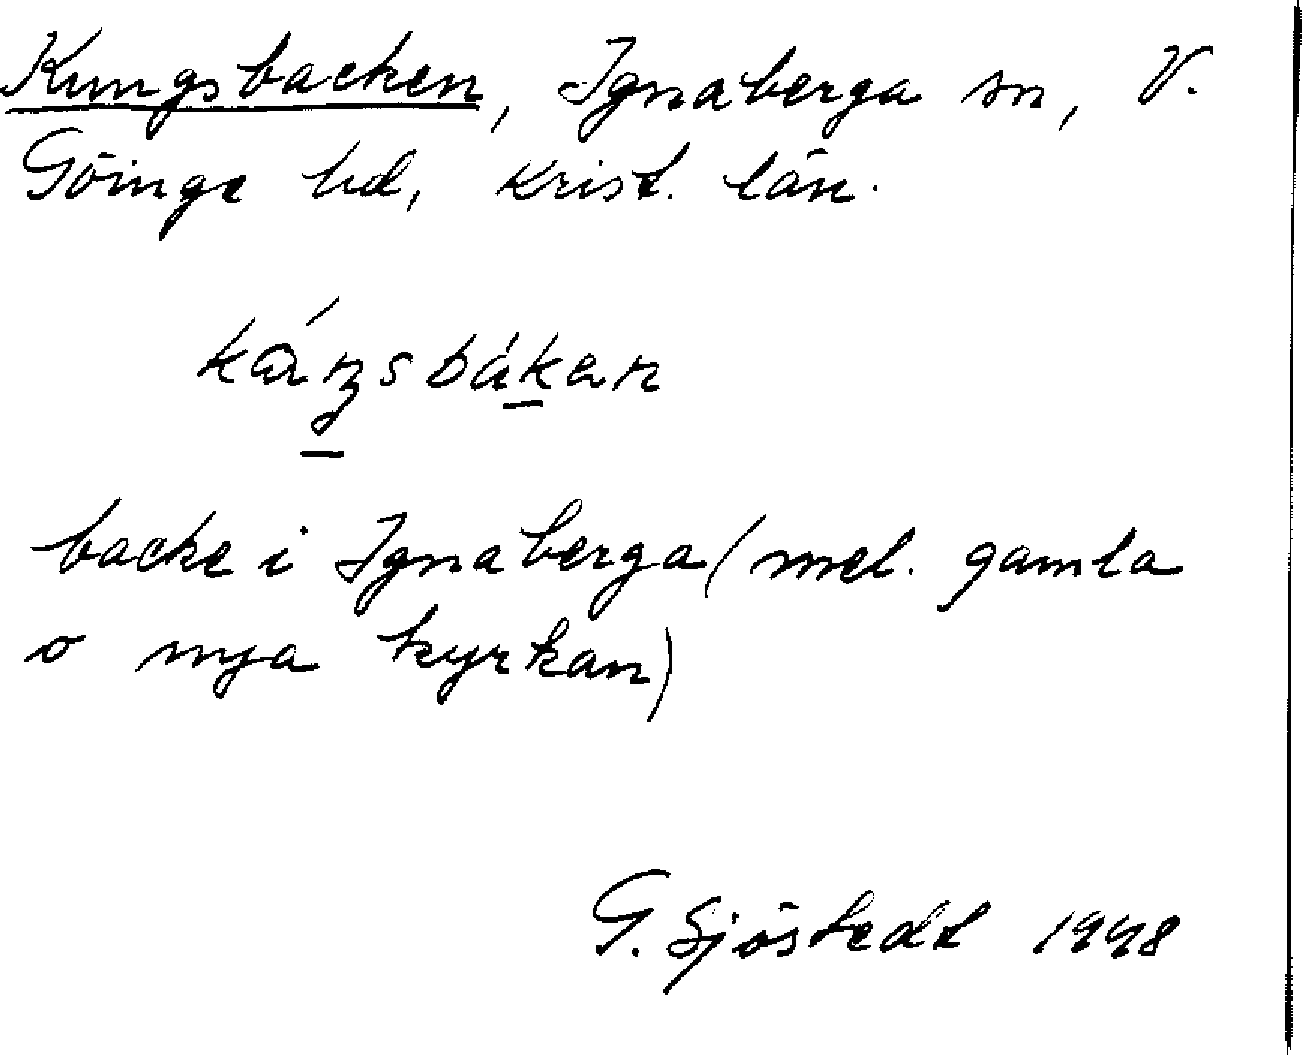 Kungsbacken, Ignaberga sn, V.
Göinge hd, Krist. län.
káŋsbákan
backe i Ignaberga (mel. gamla
o nya kyrkan)
G. Sjöstedt 1948